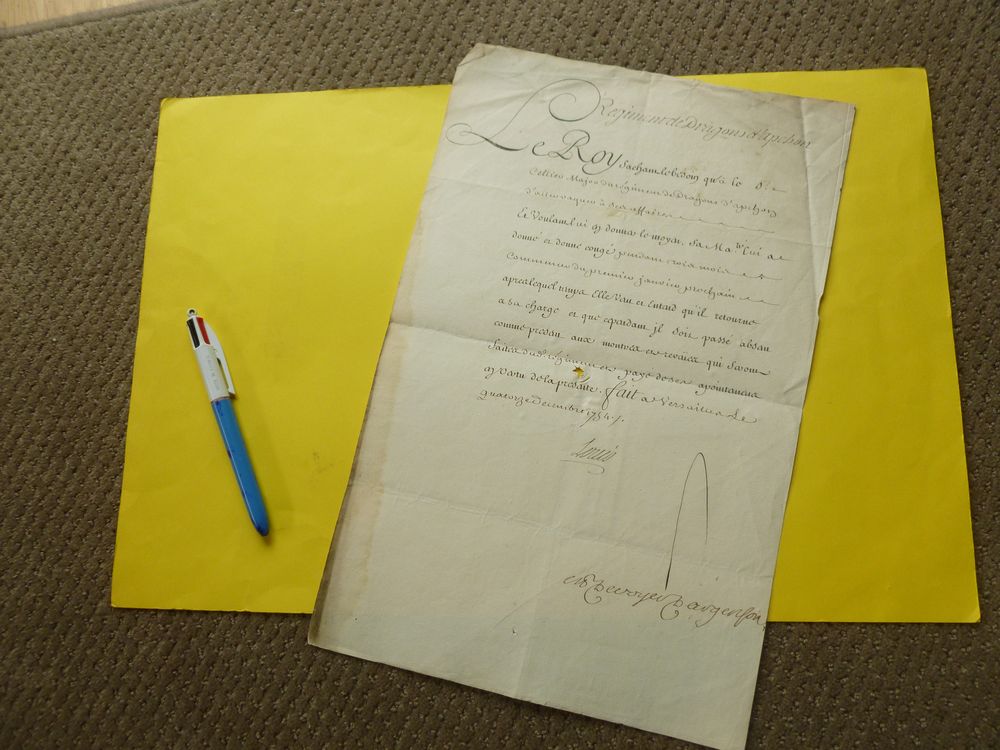 Regiment de Dragons d'apchon
Le Roy Sachant le besoin qu'a le S.r
Major du régiment de Dragons d'apchon
d'aller vaquer à ses affaires
Et Voulant lui en donner le moyen, Sa Ma.té lui a
donné et donne congé pendant trois mois
Commencer du premier janvier prochain
aprés lequel temps Elle Veut et Entend qu'il retourne
a sa charge et que cependant il soit passé absent
comme présent aux montres et revües qui seront
faites dud. régiment et payé de ses apointemens
en vertu de la présente. fait a Versailles Le
quatorze Decembre 1754./.
Louis
M P De voyer D'argenson